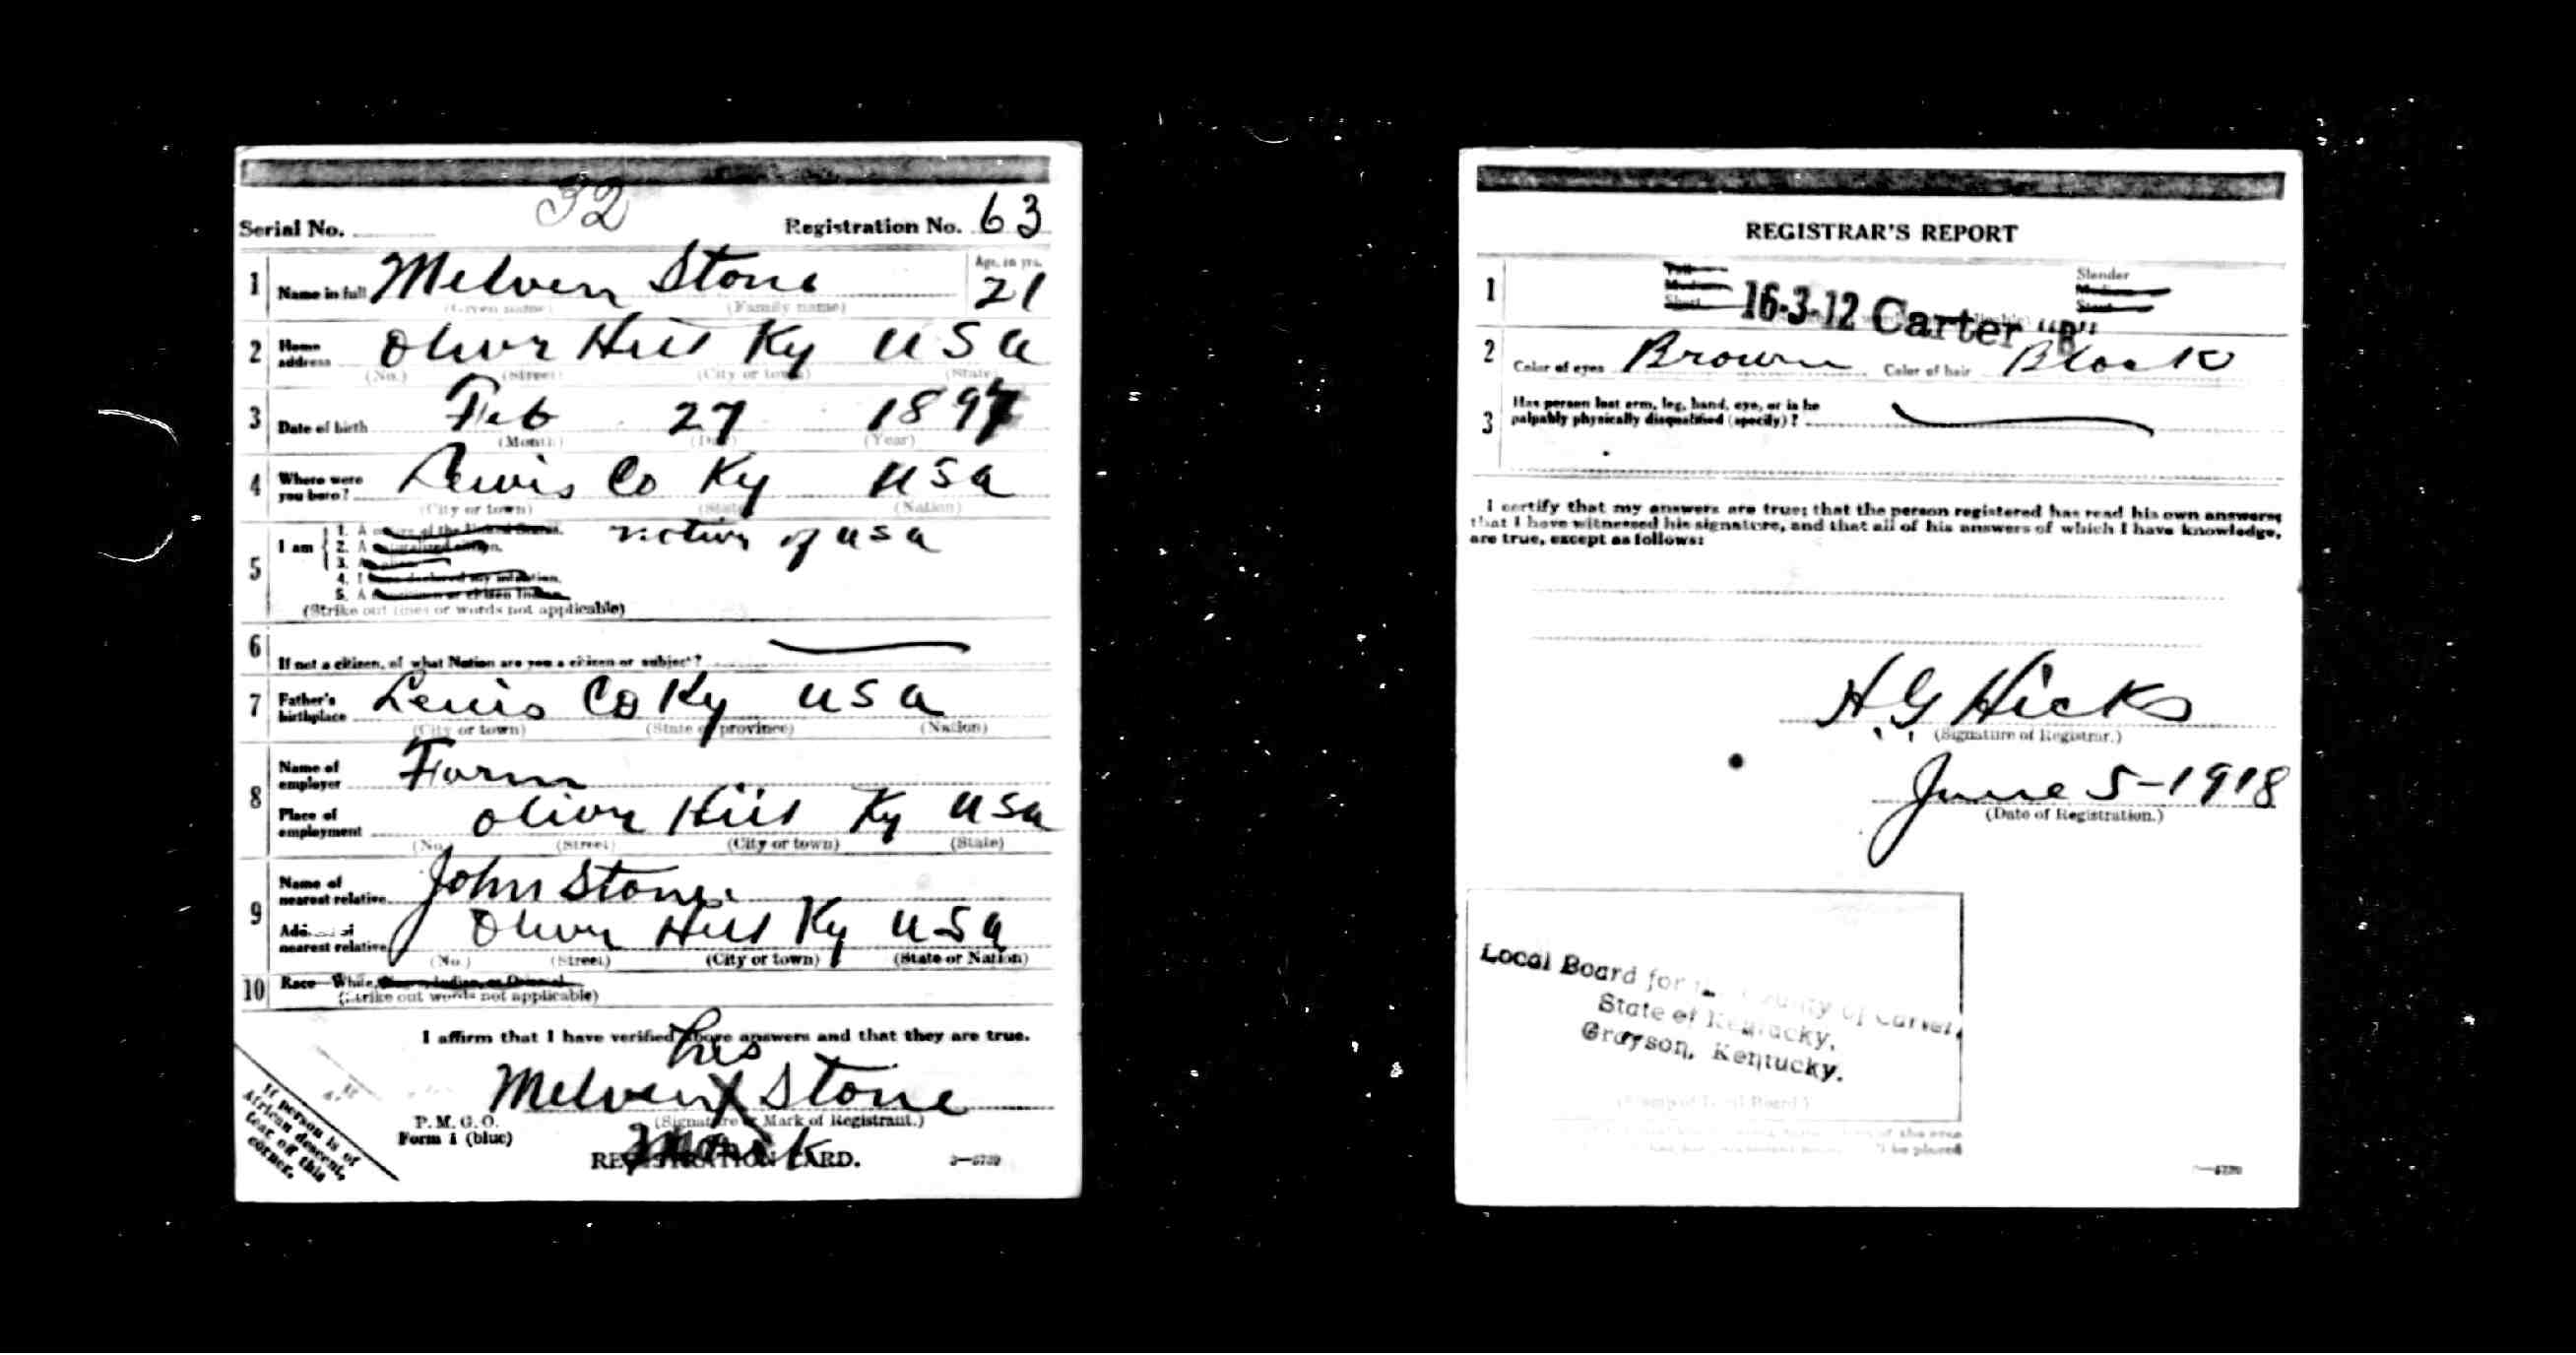 32
Serial No. Registration No. 63
1 Name in full Melven Stone Age, in yrs. 21
(Given name) (Family name)
2 Home address Olivr Hill Ky USA
(No.) (Street) (City or town) (State)
3 Date of birth Feb 27 1897
(Month) (Day) (Year)
4 Where were you born? Lewis Co Ky USA
(City or town) (State) (Nation)
5 I am
1. A native of the United States. Native of USA
2. A naturalized citizen.
3. An alien.
4. I have declared my intention.
5. A noncitizen or citizen Indian.
(Strike out lines or words not applicable)
6 If not a citizen, of what Nation are you a citizen or subject?
7 Father's birthplace Lewis Co Ky USA
(City or town) (State or province) (Nation)
8 Name of employer Farm
Place of employment Olivr Hill Ky USA
(No.) (Street) (City or town) (State)
9 Name of nearest relative John Stone
Address of nearest relative Olivr Hill Ky USA
(No.) (Street) (City or town) (State or Nation)
10 Race—White, Negro, Indian, or Oriental
(Strike out words not applicable)
I affirm that I have verified above answers and that they are true.
his
Melven X Stone
(Signature or Mark of Registrant.)
Mark
P. M. G. O.
Form 1 (blue)
REGISTRATION CARD. 3—5739
If person is of
African descent,
tear off this
corner.
REGISTRAR'S REPORT
1 Tall Slender
Medium Medium
Short Stout
16-3-12 Carter "B"
2 Color of eyes Brown Color of hair Black
3 Has person lost arm, leg, hand, eye, or is he
palpably physically disqualified (specify)?
I certify that my answers are true; that the person registered has read his own answers;
that I have witnessed his signature, and that all of his answers of which I have knowledge,
are true, except as follows:
H G Hicks
(Signature of Registrar.)
June 5-1918
(Date of Registration.)
Local Board for the County of Carter,
State of Kentucky,
Grayson, Kentucky.
(Stamp of Local Board.)